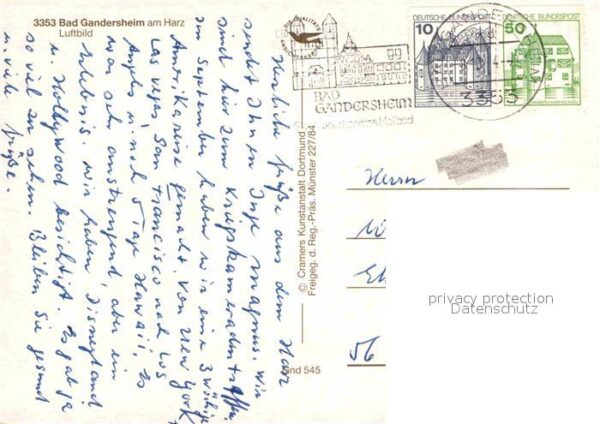 3353 Bad Gandersheim am Harz
Luftbild
Herzliche Grüße aus dem Harz
sendet Ihnen Inge Magnus. Wir
sind hier zum Kriegskameradentreffen.
im September haben wir eine 3 wöchige
Amerikareise gemacht. Von New York
Las Vegas, San Francisco nach Los
Angeles u. noch 5 Tage Hawaii. Es
war sehr anstrengend, aber ein
Erlebnis. Wir haben Disneyland
u. Hollywood besichtigt. Es gab ja
so viel zu sehen. Bleiben Sie gesund
u. viele Grüße.
© Cramers Kunstanstalt Dortmund
Freigeg. d. Reg.-Präs. Münster 227/84
545
BAD
GANDERSHEIM
DEUTSCHE BUNDESPOST
10
DEUTSCHE BUNDESPOST
50
3353
Herrn
56
privacy protection
Datenschutz